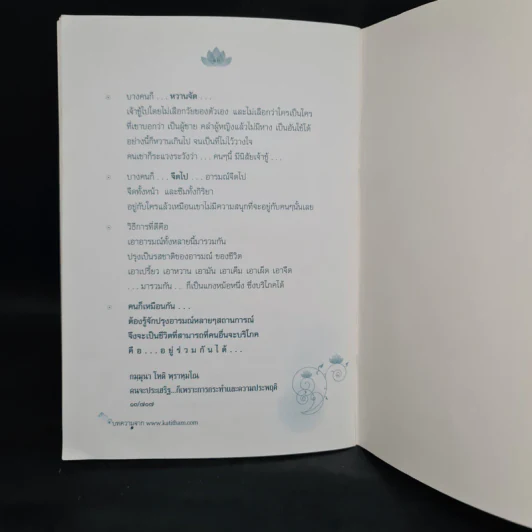 บางคนก็ . . . หวานจัด . . .
เจ้าชู้ไปโดยไม่เลือกวัยของตัวเอง และไม่เลือกว่าใครเป็นใคร
ที่เขาบอกว่า เป็นผู้ชาย คลำดูหญิงแล้วไม่มีหาง เป็นอันใช้ได้
อย่างนี้ก็หวานเกินไป จนเป็นที่ไม่ไว้วางใจ
คนเขาก็ระแวงระวังว่า . . . คนๆนี้ มีนิสัยเจ้าชู้ . . .
บางคนก็ . . . จืดไป . . . อารมณ์จืดไป
จืดทั้งหน้า และซึมทั้งกิริยา
อยู่กับใครแล้วเหมือนเขาไม่มีความสุกที่จะอยู่กับคนๆนั้นเลย
วิธีการที่ดีคือ
เอาอารมณ์ทั้งหลายนี้มารวมกัน
ปรุงเป็นรสชาติของอารมณ์ ของชีวิต
เอาเปรี้ยว เอาหวาน เอามัน เอาเค็ม เอาเผ็ด เอาจืด
. . . มารวมกัน . . ก็เป็นแกงหม้อหนึ่ง ซึ่งบริโภคได้
คนก็เหมือนกัน . . .
ต้องรู้จักปรุงอารมณ์หลายๆสถานการณ์
จึงจะเป็นชีวิตที่สามารถที่คนอื่นจะบริโภค
คือ . . . อยู่ร่วมกันได้ . . .
กมฺมุนา โหติ พฺราหฺมโณ
คนจะประเสริฐ...ก็เพราะการกระทำและความประพฤติ
๑๐/๗๐๗
บทความจาก www.katitham.com